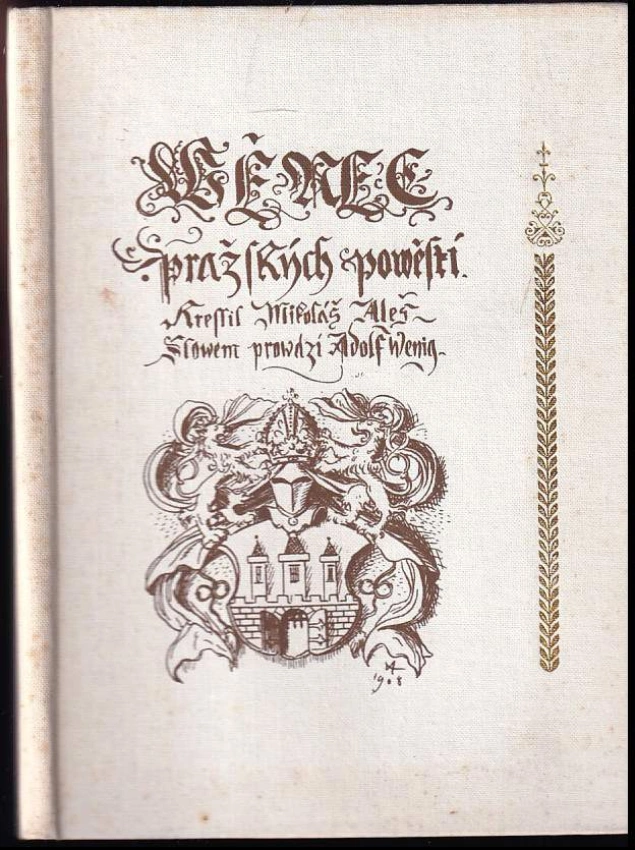 WĚNEC
pražských powěstí.
Kreslil Mikoláš Aleš
Slowem prowází Adolf Wenig.
MA
1908